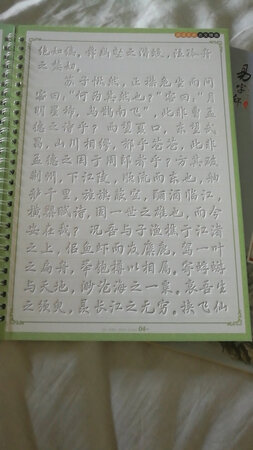 绝如缕。舞幽壑之潜蛟，泣孤舟
之嫠妇。
苏子愀然，正襟危坐而问
客曰：“何为其然也？”客曰：“月
明星稀，乌鹊南飞”，此非曹孟
德之诗乎？西望夏口，东望武
昌，山川相缪，郁乎苍苍，此非
孟德之困于周郎者乎？方其破
荆州，下江陵，顺流而东也，舳
舻千里，旌旗蔽空，酾酒临江，
横槊赋诗，固一世之雄也，而今
安在哉？况吾与子渔樵于江渚
之上，侣鱼虾而友麋鹿，驾一叶
之扁舟，举匏樽以相属。寄蜉蝣
与天地，渺沧海之一粟。哀吾生
之须臾，羡长江之无穷。挟飞仙
04